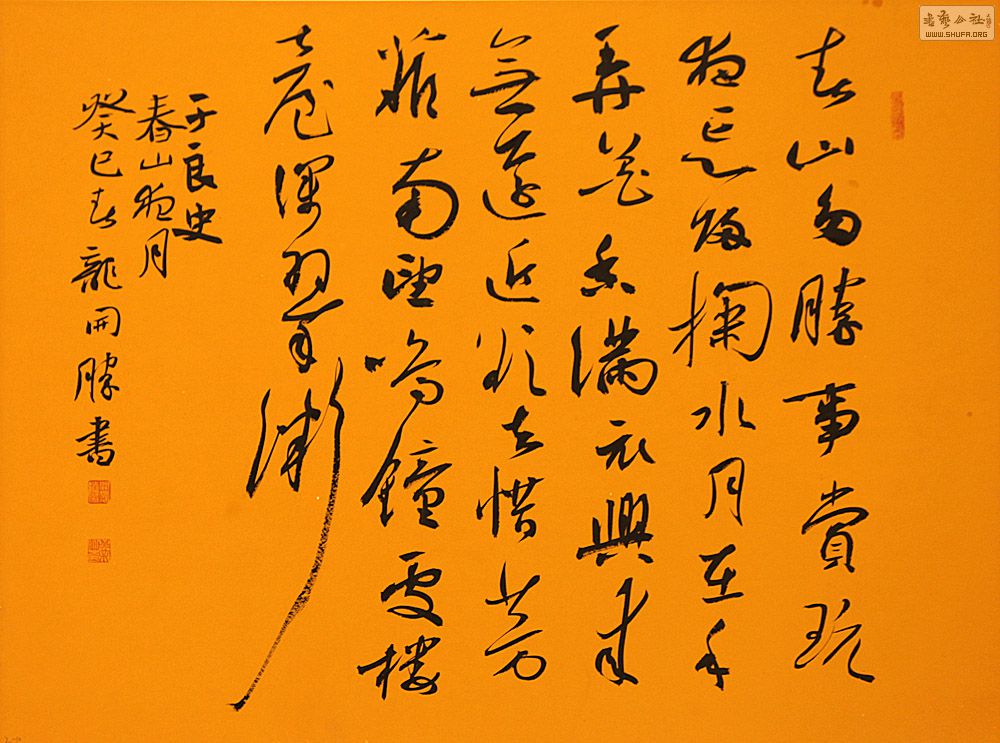 春山多勝事賞玩
夜忘歸掬水月在手
弄花香滿衣興來
無遠近欲去惜芳
菲南望鳴鐘處樓
臺深翠微
于良史
春山夜月
癸巳春龍開勝書
書藝公社
WWW.SHUFA.ORG